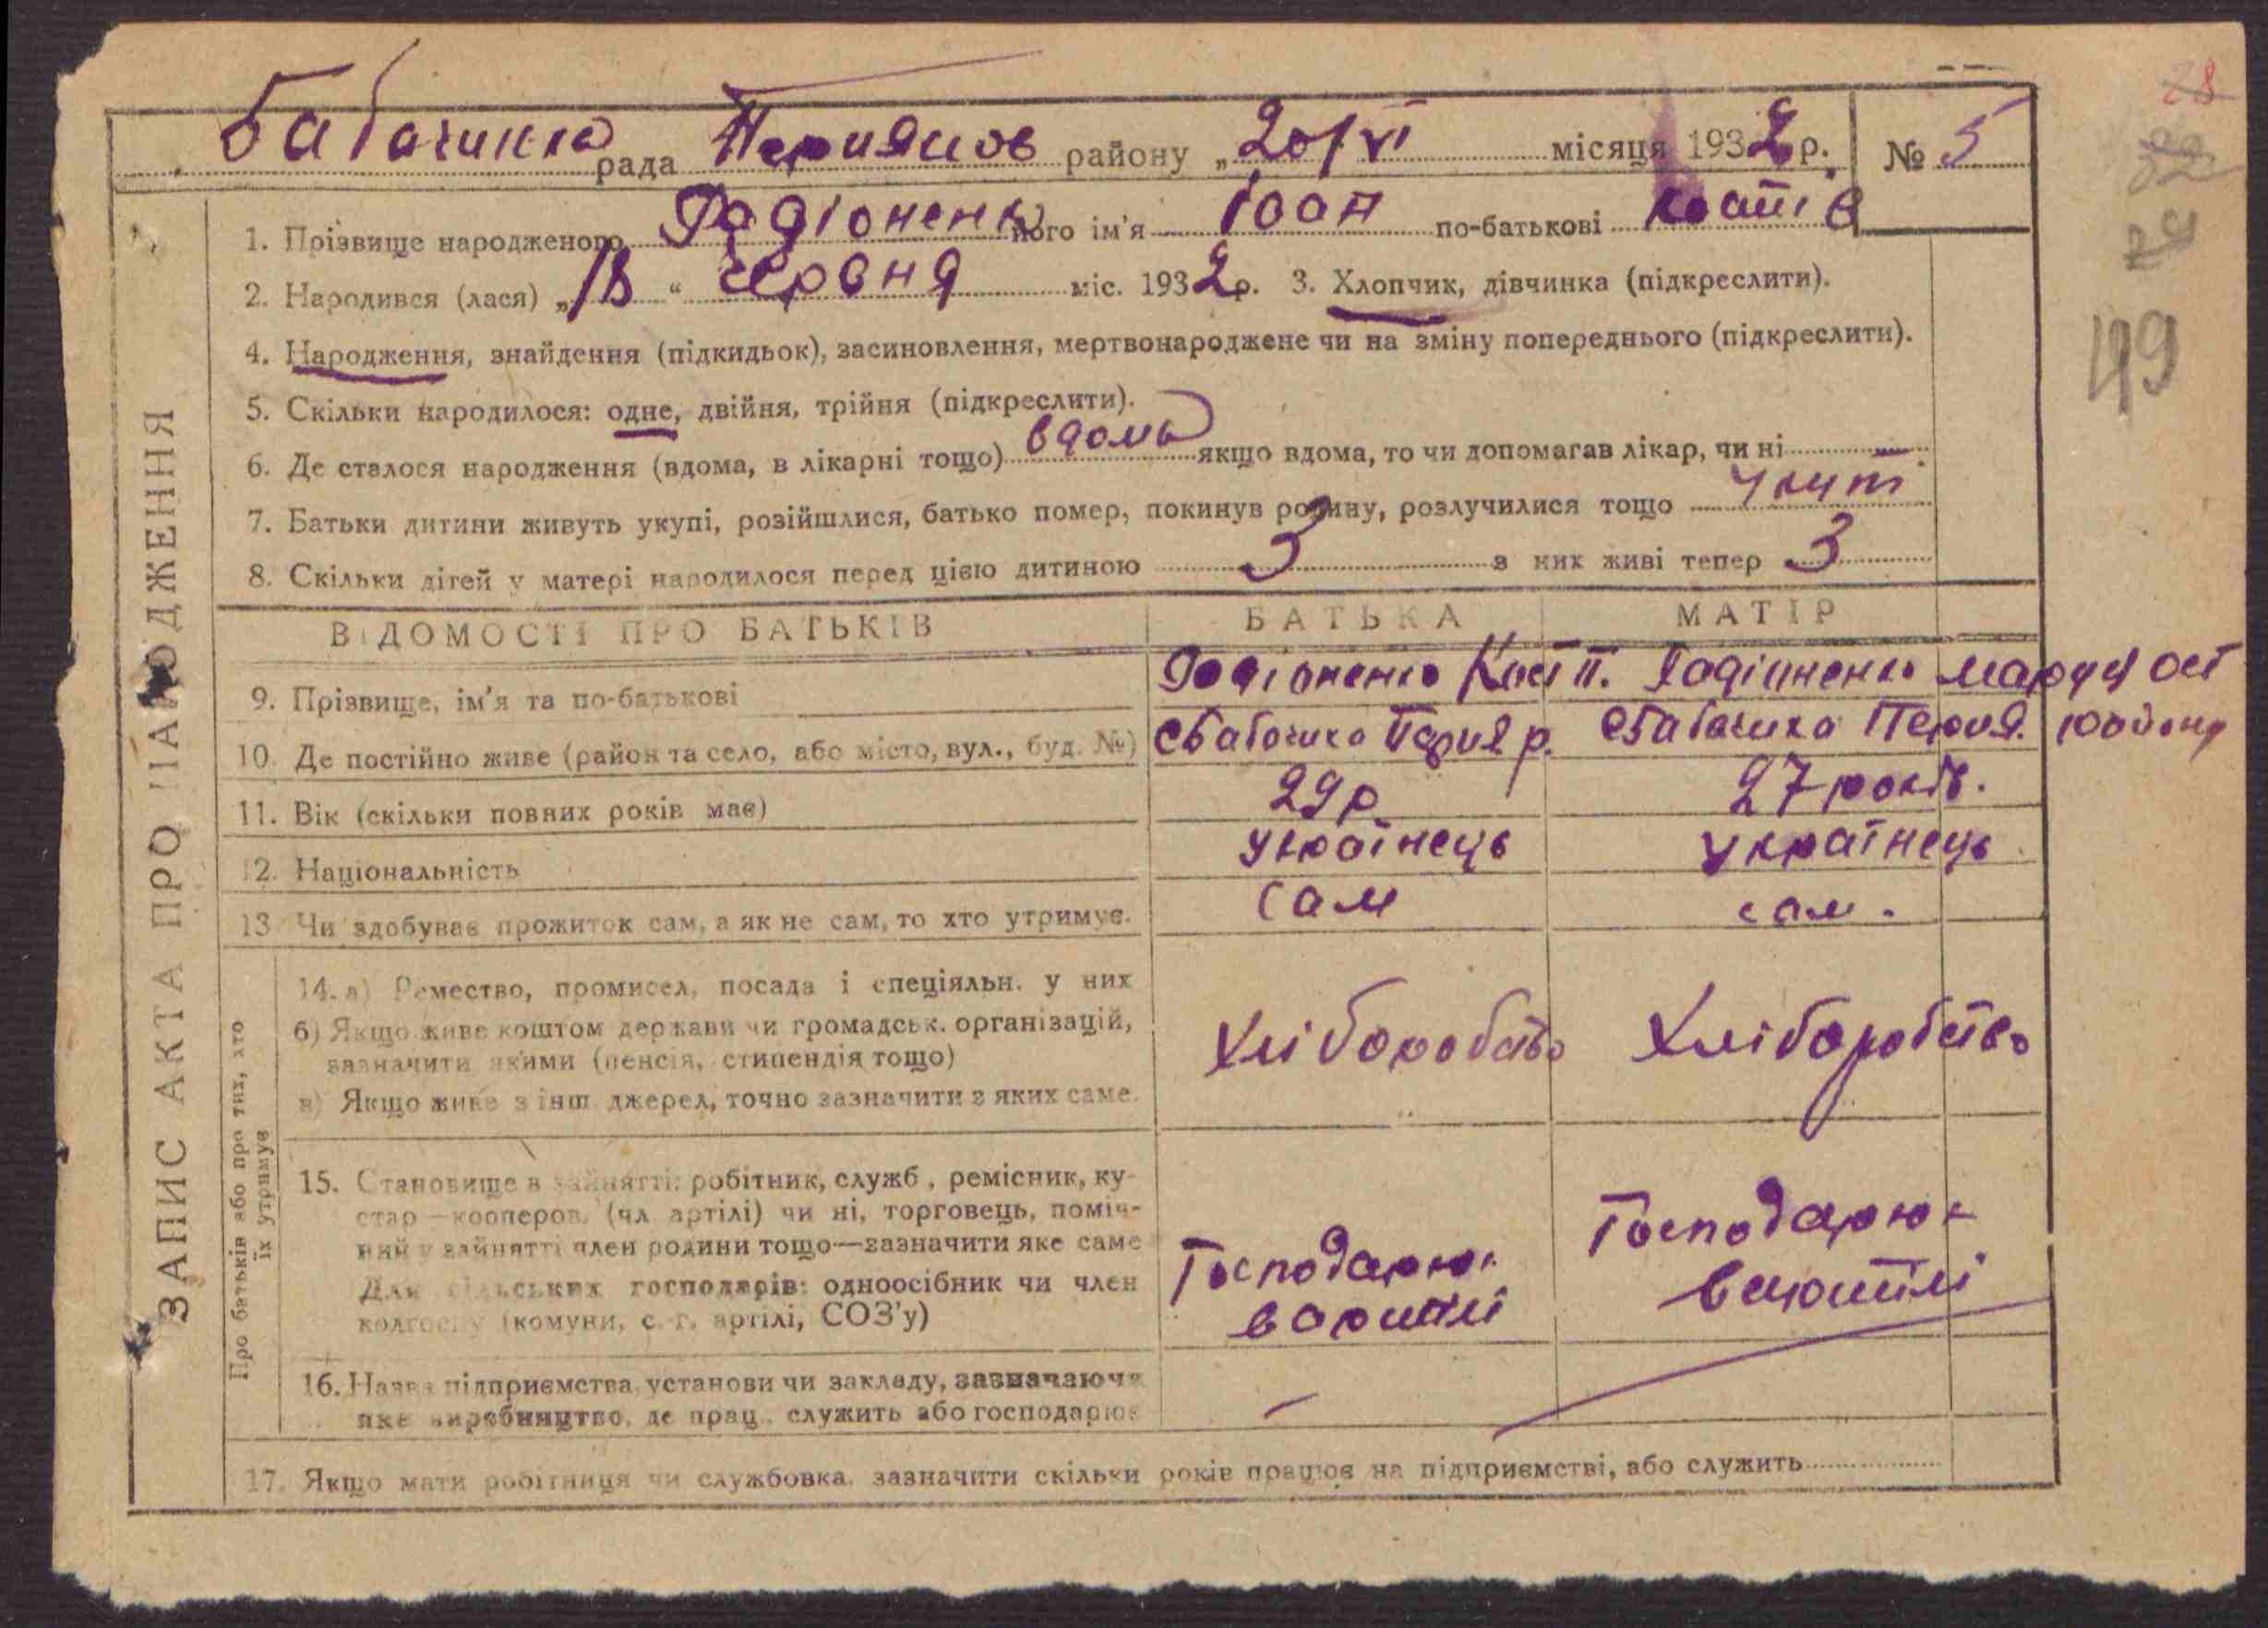 28
Бабачинка рада Перияслов району „20/VI місяця 1932 р. № 5
1. Прізвище народженого Родіоненко його ім'я Іван по-батькові Костів
2. Народився (лася) „18“ червня міс. 1932 р. 3. Хлопчик, дівчинка (підкреслити).
4. Народження, знайдення (підкидьок), засиновлення, мертвонароджене чи на зміну попереднього (підкреслити).
49
5. Скільки народилося: одне, двійня, трійня (підкреслити).
6. Де сталося народження (вдома, в лікарні тощо) вдома якщо вдома, то чи допомагав лікар, чи ні —
7. Батьки дитини живуть укупі, розійшлися, батько помер, покинув родину, розлучилися тощо
8. Скільки дітей у матері народилося перед цією дитиною 3 з них живі тепер 3
ЗАПИС АКТА ПРО НАРОДЖЕННЯ
ВІДОМОСТІ ПРО БАТЬКІВ БАТЬКА МАТІР
9. Прізвище, ім'я та по-батькові Родіоненко Кост П. Родіоненко Маруся Ост
10. Де постійно живе (район та село, або місто, вул., буд. №) с Бабачика Перия р. с Бабачика Перия. району
11. Вік (скільки повних років має) 29 р 27 років.
12. Національність українець українець
13. Чи здобуває прожиток сам, а як не сам, то хто утримує. сам сам.
Про батьків або про тих, хто їх утримує
14. а) Ремество, промисел, посада і спеціяльн. у них
б) Якщо живе коштом держави чи громадськ. організацій,
зазначити якими (пенсія, стипендія тощо) Хліборобство Хліборобство
в) Якщо живе з інш. джерел, точно зазначити з яких саме.
15. Становище в зайнятті: робітник, служб., ремісник, ку-
стар—кооперов. (чл артілі) чи ні, торговець, поміч-
ний у зайнятті член родини тощо—зазначити яке саме
Для сільських господарів: одноосібник чи член
колгоспу (комуни, с. г. артілі, СОЗ'у)
Господарює
в артілі
Господарює
в артілі
16. Назва підприємства, установи чи закладу, зазначаючи
яке виробництво, де прац., служить або господарює —
17. Якщо мати робітниця чи службовка, зазначити скільки років працює на підприємстві, або служить